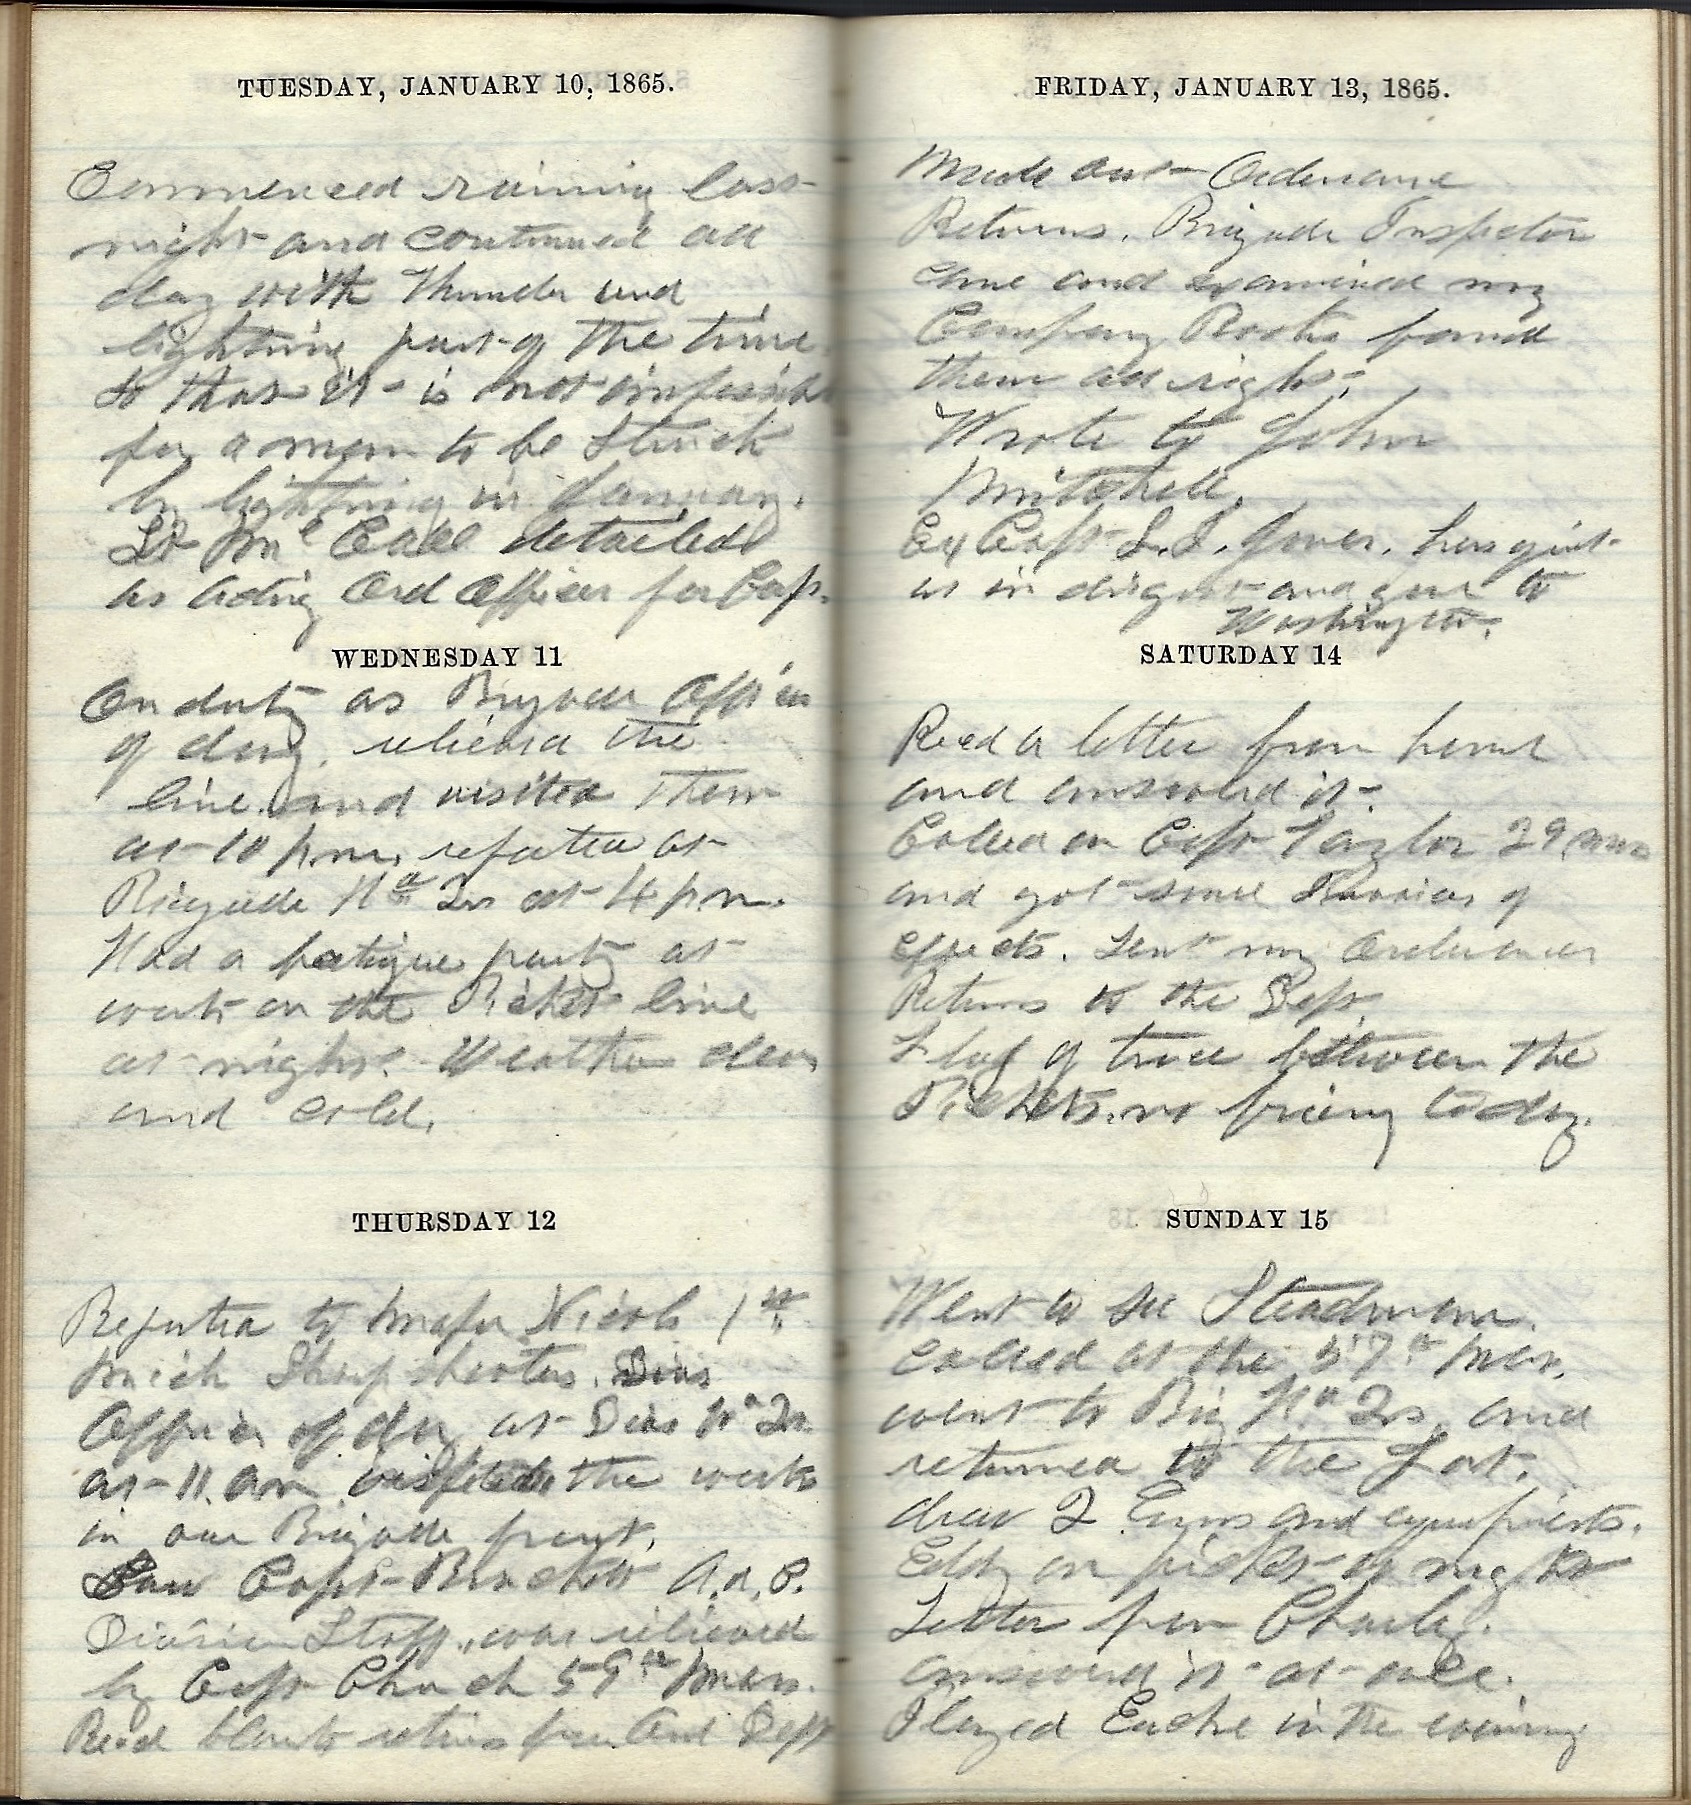 TUESDAY, JANUARY 10, 1865.
Commenced raining last
night and continued all
day with Thunder and
lightning part of the time
so that it is not impossible
for a man to be Struck
by lightning in January.
Lt Mc Call detailed
as Acting Ord Officer for Corps.
WEDNESDAY 11
On duty as Brigade Officer
of day, relieved the
line and visited Them
at 10 p.m. reported at
Brigade Hd Qrs at 4 p.m.
Had a fatigue party at
work on the Picket line
at night. Weather clear
and cold.
THURSDAY 12
Reported to Major Nicols 1st
Mich Sharpshooters, Divis
Officer of day at Divis Hd Qrs
at 11. am the works
in our Brigade front.
Saw Capt Brackett A.A.C.
Division Staff, was relieved
by Capt Church 59th Mass.
Recd blank retns from Ord Dept
FRIDAY, JANUARY 13, 1865.
Made out Ordenance
Returns. Brigade Inspector
came and examined my
Company Books found
them all right.
Wrote to John
Mitchell.
Ex Capt L. I. Jones. has quit
us in disgust and gone to
Washington.
SATURDAY 14
Recd a letter from home
and answered it.
Called on Capt Taylor 29 Mass
and got some of
effects. Sent my Ordenance
Returns to the Dept.
Flag of truce between the
Pickets. no firing today.
SUNDAY 15
Went to see Steadman.
Called at the 57th Mass.
went to Brig Hd Qrs and
returned to the Fort.
drew 2 Guns and equipments.
Eddy on picket to night
Letter from Charley.
answered it at once.
Played Euchre in the evening